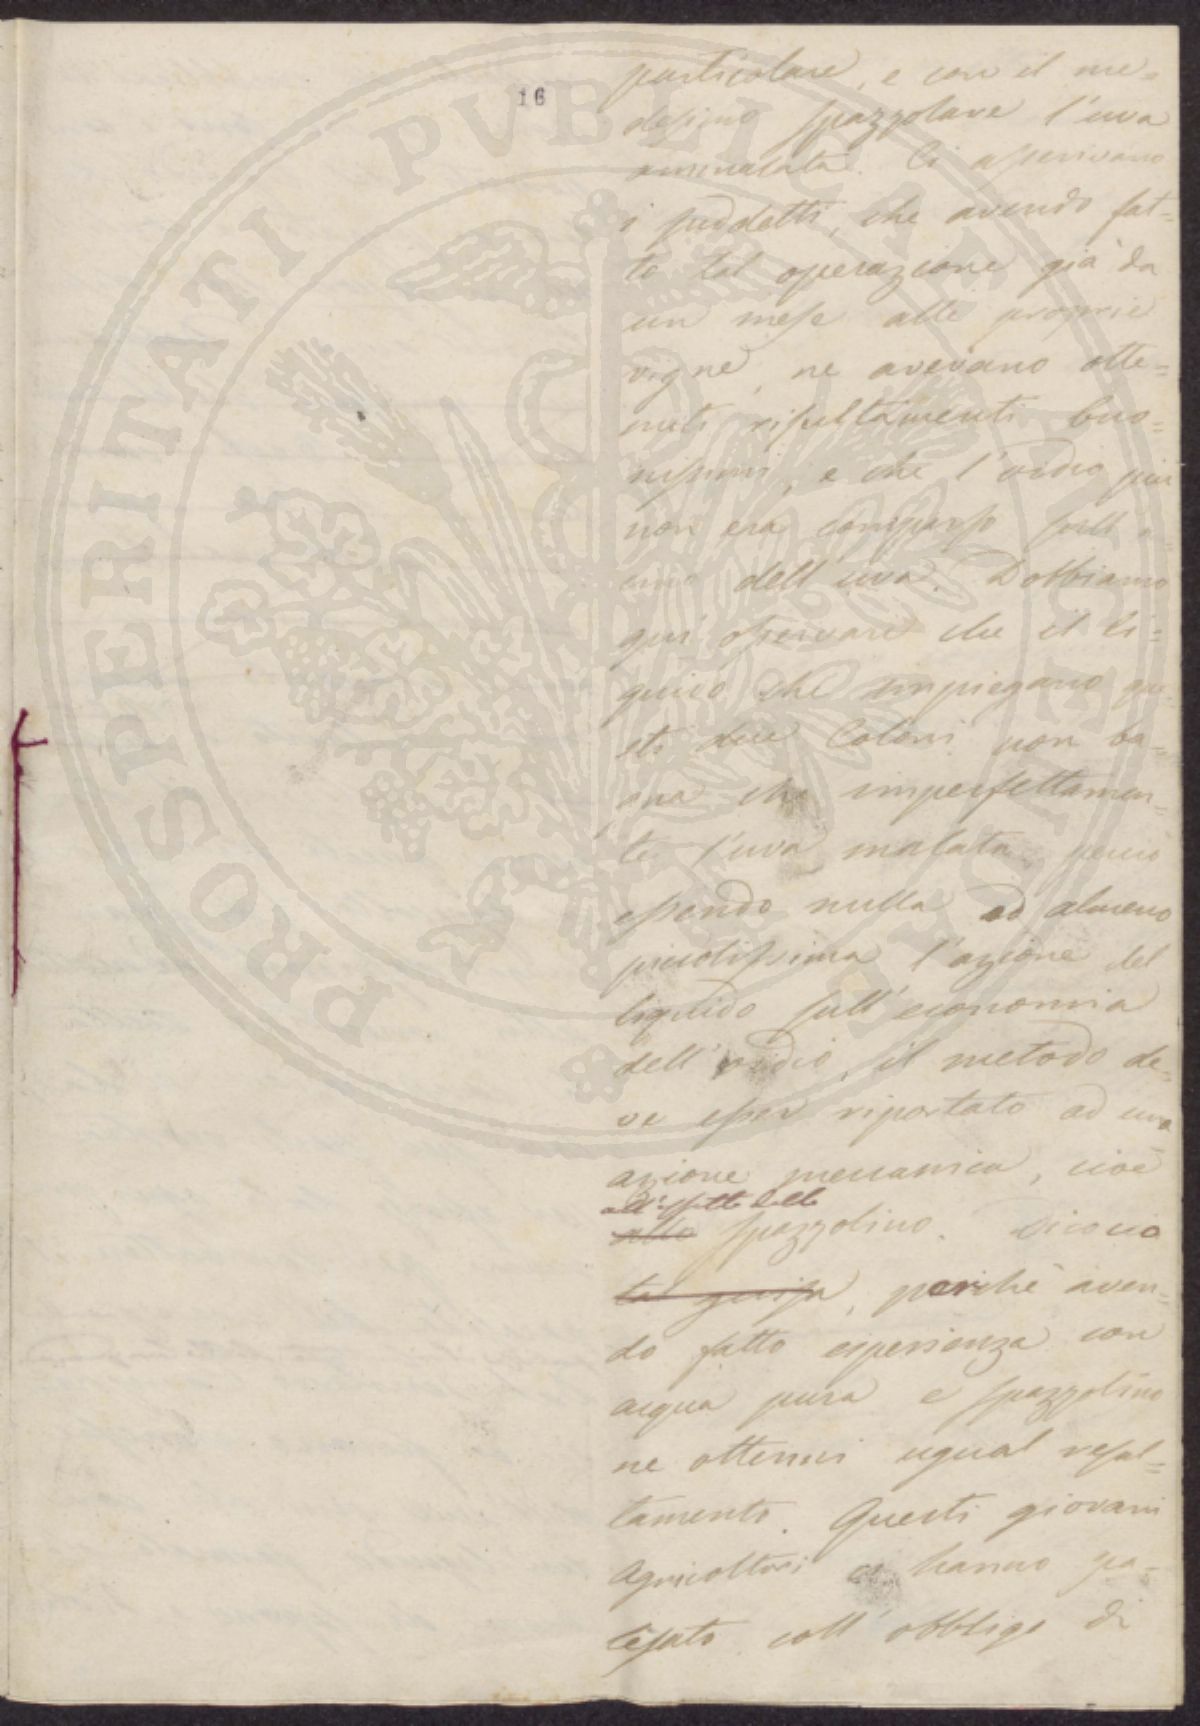 16
particolare, e con il me=
desimo spazzolare l'uva
ammalata. Ci asserivano
i suddetti, che avendo fat=
to tal operazione già da
un mese alle proprie
vigne, ne avevano otte=
nuti risultamenti buo=
nissimi, e che l'oidio più
non era comparso sull'a=
cino dell'uva. Dobbiamo
quì osservare che il li=
quido che impiegano que=
sti due Coloni non ba=
gna che imperfettamen=
te l'uva malata, perciò
essendo nulla od almeno
piccolissima l'azione del
liquido sull'economia
dell'oidio, il metodo de=
ve esser riportato ad una
azione meccanica, cioè
all'effetto dello
allo spazzolino. Dico ciò
tal guisa, perchè aven=
do fatto esperienza con
acqua pura e spazzolino
ne ottenni ugual resul=
tamento. Questi giovani
Agricoltori ci hanno pa=
lesato coll'obbligo di
PROSPERITATI PVBLICAE AVGENDAE